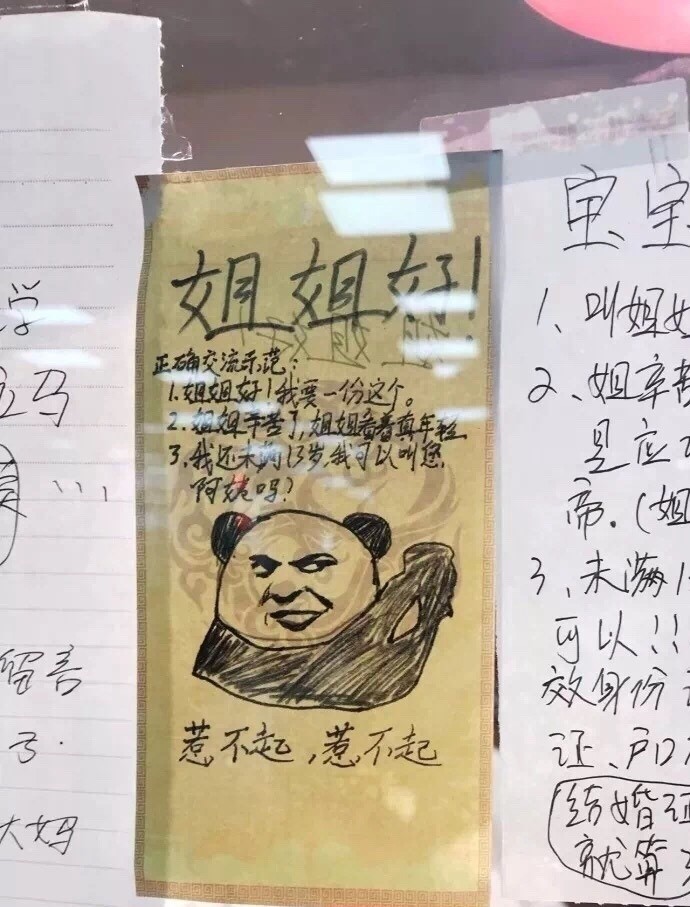 学
马
...
留言
大妈
姐姐好!
正确交流示范:
1.姐姐好!我要一份这个。
2.姐姐辛苦了,姐姐看着真年轻
3.我还未满13岁,我可以叫您
阿姨吗?
惹不起,惹不起
宝宝
1、叫姐姐
2、姐辛苦
是应
帝.(姐
3、未满1
可以!!
效身份
证、户口
结婚证
就算